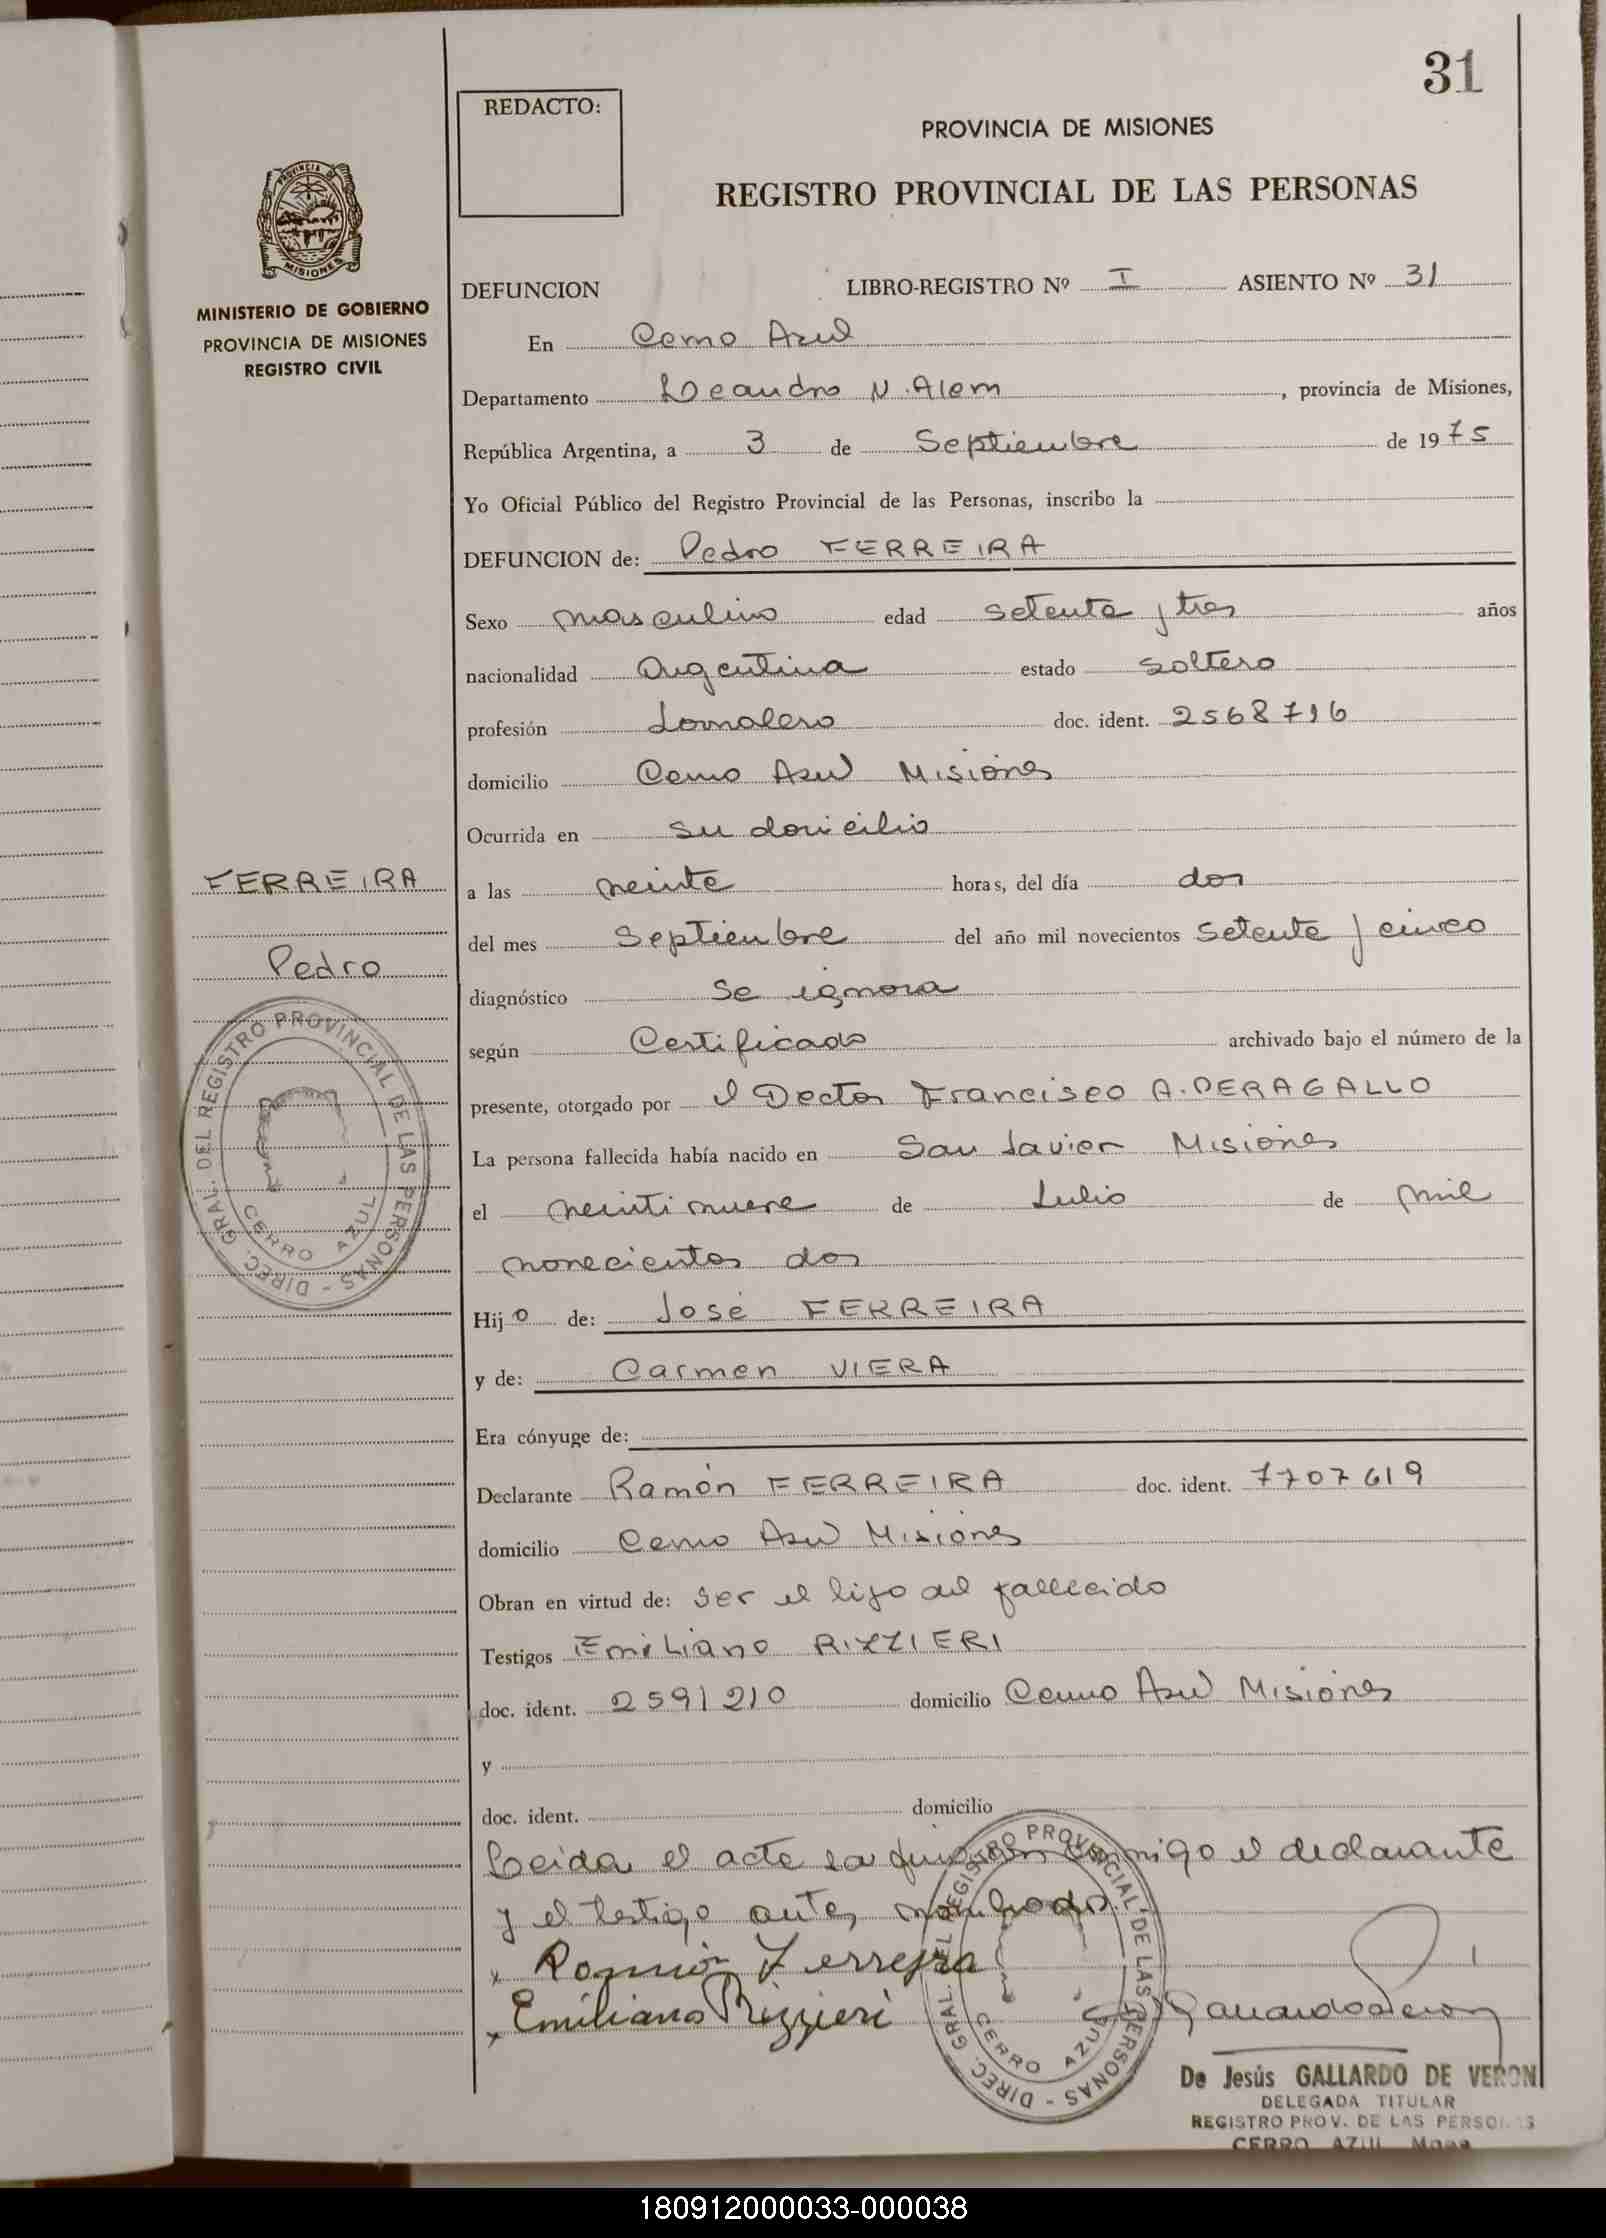 31
REDACTO:
PROVINCIA DE MISIONES
REGISTRO PROVINCIAL DE LAS PERSONAS
PROVINCIA DE
MISIONES
MINISTERIO DE GOBIERNO
PROVINCIA DE MISIONES
REGISTRO CIVIL
DEFUNCION LIBRO-REGISTRO Nº I ASIENTO Nº 31
En Cerro Azul
Departamento Leandro N. Alem, provincia de Misiones,
República Argentina, a 3 de Septiembre de 1975
Yo Oficial Público del Registro Provincial de las Personas, inscribo la
DEFUNCION de: Pedro FERREIRA
Sexo masculino edad setenta y tres años
nacionalidad Argentina estado soltero
profesión Jornalero doc. ident. 2568716
domicilio Cerro Azul Misiones
Ocurrida en su domicilio
FERREIRA
Pedro
a las veinte horas, del día dos
del mes Septiembre del año mil novecientos setenta y cinco
diagnóstico se ignora
según Certificado archivado bajo el número de la
presente, otorgado por el Doctor Francisco A. PERAGALLO
La persona fallecida había nacido en San Javier Misiones
el veintinueve de Julio de mil
novecientos dos
DIREC. GRAL. DEL REGISTRO PROVINCIAL DE LAS PERSONAS -
CERRO AZUL
Hijo de: José FERREIRA
y de: Carmen VIERA
Era cónyuge de:
Declarante Ramón FERREIRA doc. ident. 7707619
domicilio Cerro Azul Misiones
Obran en virtud de: ser el hijo del fallecido
Testigos Emiliano RIZZIERI
doc. ident. 2591210 domicilio Cerro Azul Misiones
y
doc. ident. domicilio
Leida el acta la firman conmigo el declarante
y el testigo antes nombrados.
x Ramón Ferreyra
x Emiliano Rizzieri
DIREC. GRAL. DEL REGISTRO PROVINCIAL DE LAS PERSONAS -
CERRO AZUL
De Jesús GALLARDO DE VERON
DELEGADA TITULAR
REGISTRO PROV. DE LAS PERSONAS
CERRO AZUL Mnes
180912000033-000038